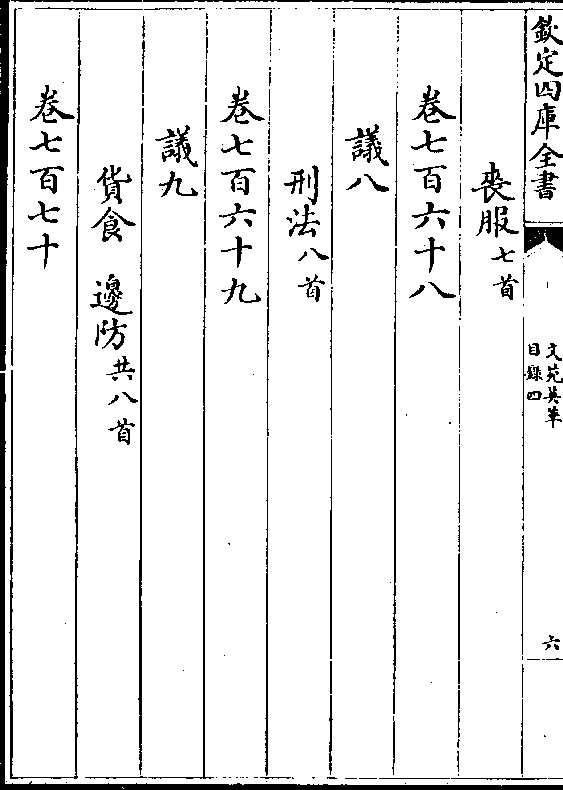 欽定四庫全書
文苑英華
目錄四
六
喪服七首
卷七百六十八
議八
刑法八首
卷七百六十九
議九
貨食 邊防共八首
卷七百七十